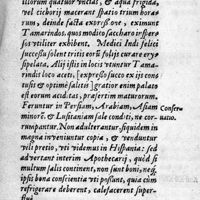 illorum quatuor vncias, & aqua frigida,
vel cichorij macerant spatio trium hora-
rum, deinde facta expreßione, eximunt
Tamarindos, quos modico saccharo insper-
sos vtiliter exhibent. Medici Indi felici
successu solent tritis eorũ folijs curare ery-
sipelata. Alij ißis in locis vtuntur Ta-
marindis loco aceti, [expresso succo ex ijs con-
tusis & optimè saltis] gratior enim palato
est eorũ acor aceto, præsertim maturorum.
Feruntur in Persiam, Arabiam, Asiam
minorẽ, & Lusitaniam sale conditi, ne cor-
rumpantur. Non adulterantur, siquidem in
magna inueniuntur copia, & venduntur
vili pretio, vti videmus in Hispania: sed
aduertant interim Apothecarij, quòd si
multum salis contineant, non sunt boni, neq;
ipsis bona conscientia vti possunt, quia cum
refrigerare deberent, calefacerent super-
Conserua-
tio.